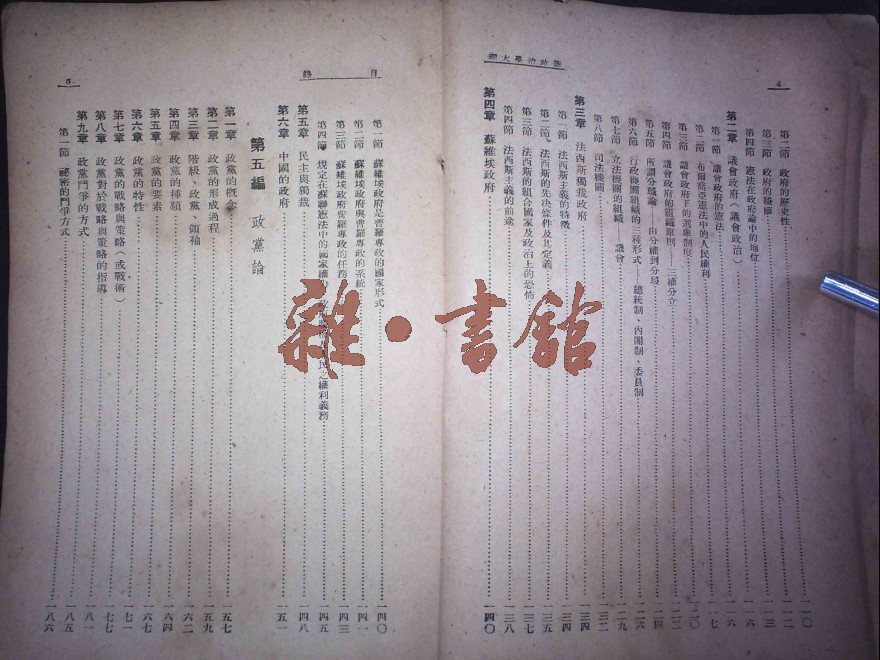 4
新政治學大綱
第二節 政府的歷史性 一一〇
第三節 政府的職權 一一二
第四節 憲法在政府論中的地位 一一三
第二章 議會政府(議會政治) 一一六
第一節 議會政府的憲法 一一六
第二節 布爾喬亞憲法中的人民權利 一一七
第三節 議會政府下的選舉制度 一二〇
第四節 議會政府的組織原則——三權分立 一二二
第五節 所謂分縣論——由分權到分縣 一二四
第六節 行政機關組織的三種形式——總統制、內閣制、委員制 一二六
第七節 立法機關的組織——議會 一二九
第八節 司法機關 一三二
第三章 法西斯獨裁政府 一三四
第一節 法西斯主義的特徵 一三四
第二節 法西斯的先決條件及其定義 一三五
第三節 法西斯的組合國家及政治上的恐怖 一三七
第四節 法西斯主義的前途 一三八
第四章 蘇維埃政府 一四〇
目錄
5
第一節 蘇維埃政府是普羅專政的國家形式 一四〇
第二節 蘇維埃政府與普羅專政的系統 一四一
第三節 蘇維埃政府普羅專政的任務 一四三
第四節 規定在蘇聯憲法中的國家組 民之權利義務 一四五
第五章 民主與獨裁 一四八
第六章 中國的政府 一五一
第五編 政黨論
第一章 政黨的概念 一五七
第二章 政黨的形成過程 一五九
第三章 階級、政黨、領袖 一六二
第四章 政黨的種類 一六四
第五章 政黨的要素 一六七
第六章 政黨的特性 一七一
第七章 政黨的戰略與策略(或戰術) 一七七
第八章 政黨對於戰略與策略的指導 一八一
第九章 政黨鬥爭的方式 一八五
第一節 祕密的鬥爭方式 一八六
雜·書館